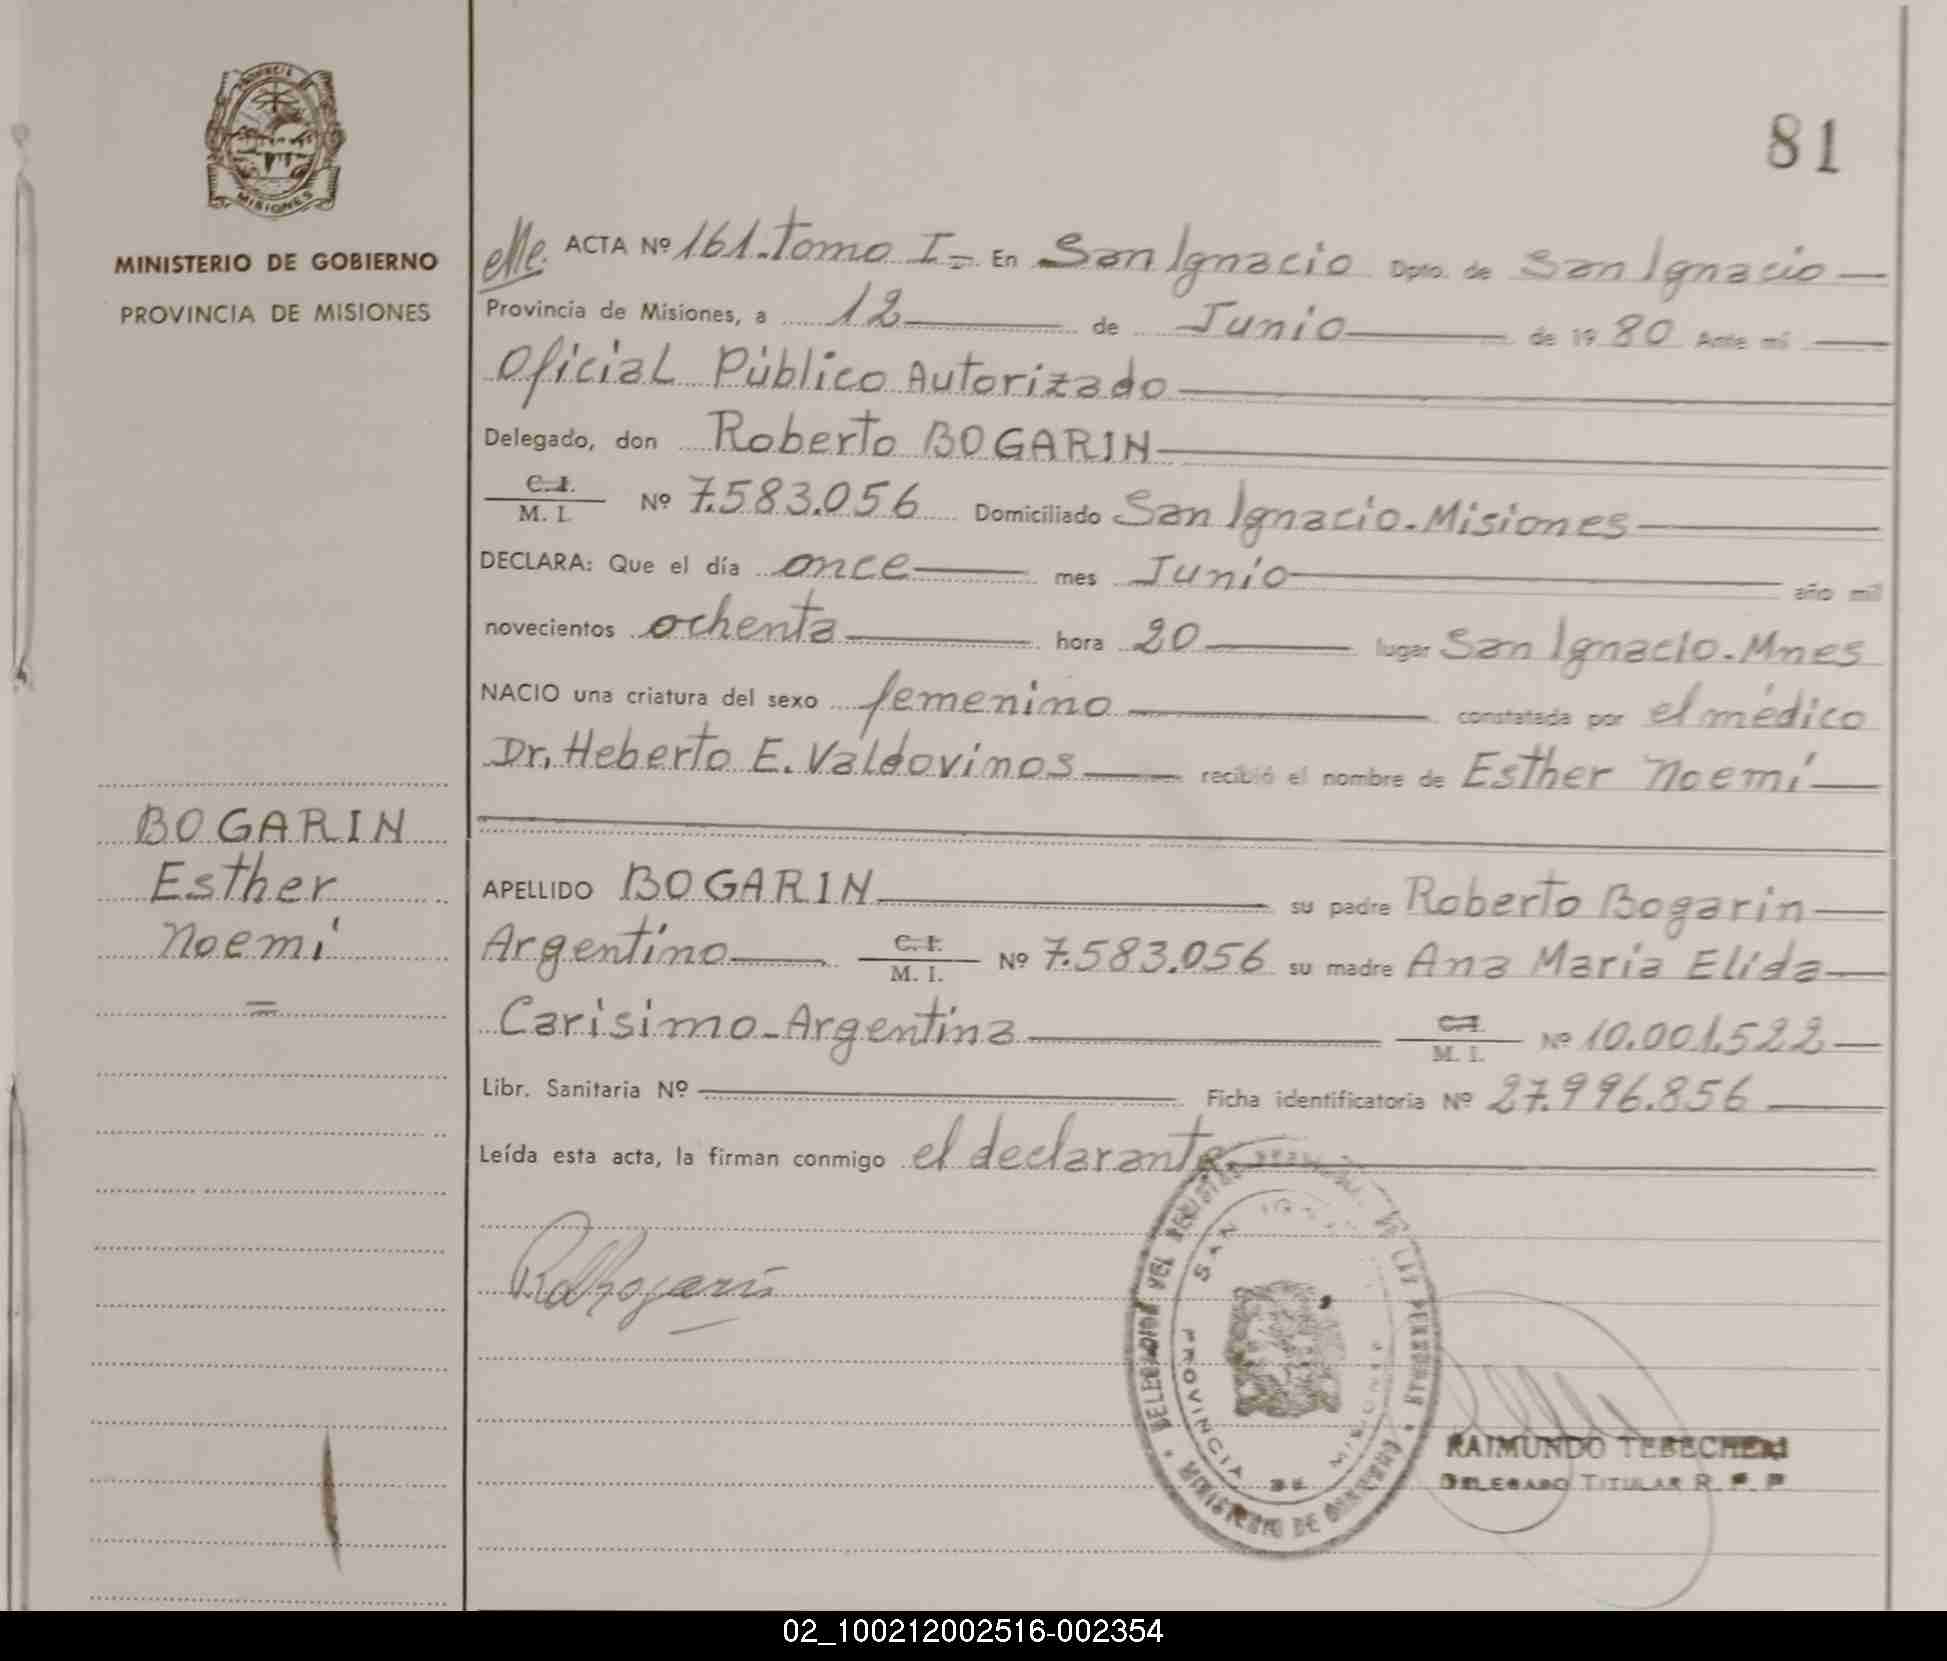 MISIONES
MINISTERIO DE GOBIERNO
PROVINCIA DE MISIONES
BOGARIN
Esther
Noemí
=
81
ACTA Nº 161.-Tomo I.= En San Ignacio Dpto. de San Ignacio
Provincia de Misiones, a 12 de Junio de 1980 Ante mí
Oficial Público Autorizado
Delegado, don Roberto BOGARIN
C. I. M. I. Nº 7.583.056 Domiciliado San Ignacio.-Misiones
DECLARA: Que el día once mes Junio año mil
novecientos ochenta hora 20 lugar San Ignacio.-Mnes
NACIO una criatura del sexo femenino constatada por el médico
Dr. Heberto E. Valdovinos recibió el nombre de Esther Noemí
APELLIDO BOGARIN su padre Roberto Bogarin
Argentino C. I. M. I. Nº 7.583.056 su madre Ana Maria Elida
Carisimo-Argentina C. I. M. I. Nº 10.001.522
Libr. Sanitaria Nº Ficha identificatoria Nº 27.996.856
Leída esta acta, la firman conmigo el declarante
SAN
PROVINCIA DE MISIONES
MINISTERIO DE GOBIERNO
RAIMUNDO TEBECHERI
DELEGADO TITULAR R. P. P
02_100212002516-002354